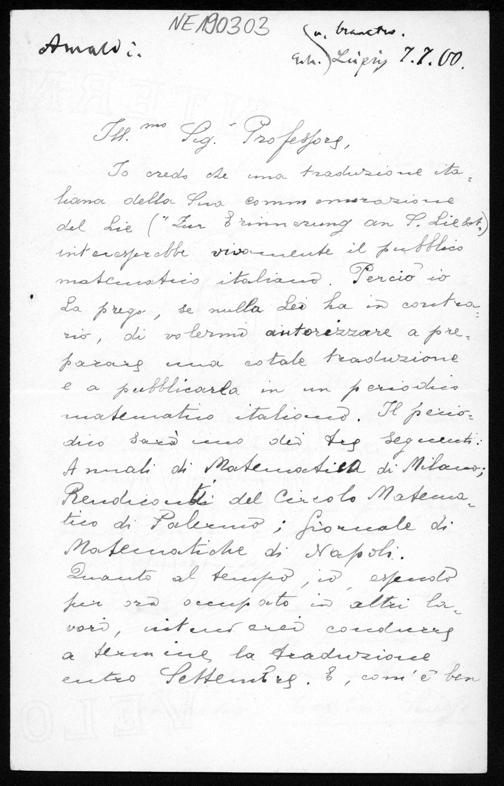 NE190303
Amaldi.
u. brauchn.
Erh. Leipzig 7.7.00.
Ill.mo Sig.r Professore,
Io credo che una traduzione ita-
liana della Sua commemorazione
del Lie ("Zur Erinnerung an S. Lie)
interesserebbe vivamente il pubblico
matematico italiano. Perciò io
La prego, se nulla Lei ha in contra-
rio, di volermi autorizzare a pre-
parare una cotale traduzione
e a pubblicarla in un periodico
matematico italiano. Il perio-
dico sarà uno dei tre seguenti:
Annali di Matematica di Milano;
Rendiconti del Circolo Matema-
tico di Palermo; Giornale di
Matematiche di Napoli.
Quanto al tempo, io, essendo
per ora occupato in altri la-
vori, intenderei condurre
a termine la traduzione
entro Settembre. E, com'è ben